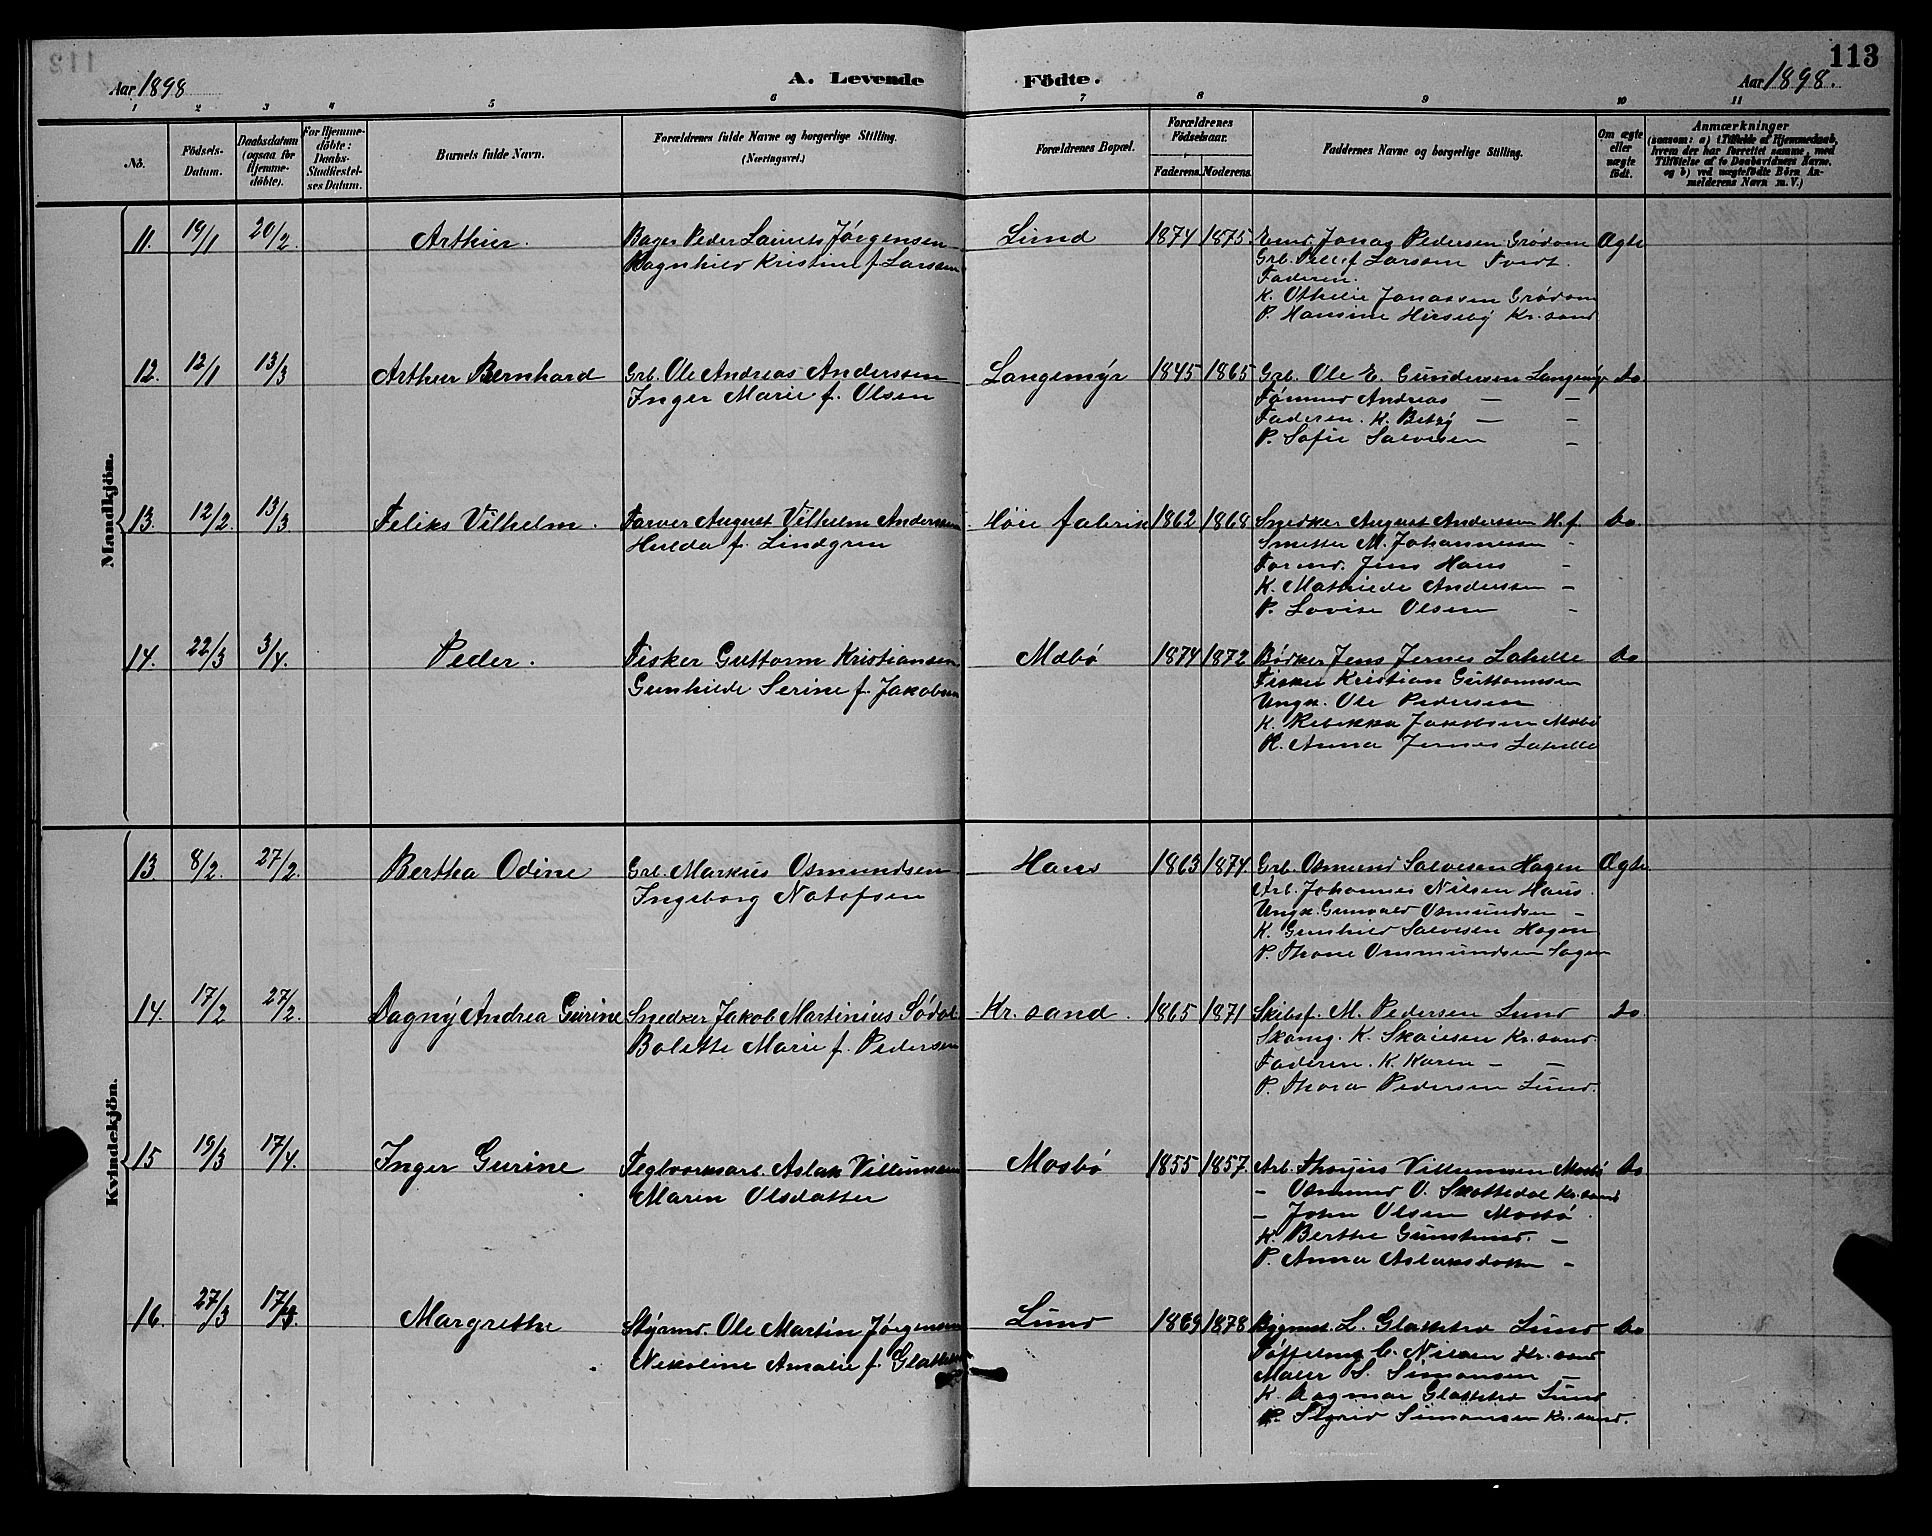 113
Aar 1898
A. Levende Födte.
Aar 1898.
1 2 3 4 5 6 7 8 9 10 11
Nō.
Födsels-Datum.
Daabsdatum (ogsaa for Hjemme-döbte).
For Hjemme-döbte: Daabs-Stadfæstel-ses Datum.
Barnets fulde Navn.
Forældrenes fulde Navne og borgerlige Stilling.
(Næringsvei.)
Forældrenes Bopæl.
Forældrenes Födselsaar.
Faderens. Moderens.
Faddernes Navne og borgerlige Stilling.
Om ægte eller uægte födt.
Anmærkninger
(saasom: a) i Tilfælde af Hjemmedaab, hvem der har forrettet samme, med Tilföielse af to Daabsvidners Navne, og b) ved uægtefödte Börn An-melderens Navn m. V.)
Mandkjön.
11. 19/1 20/2 Arthur. Bager Peder Laurits Jørgensen Lund 1874 1875 Jonas Pedersen Grødom Ægte
Ragnhild Kristine f. Larssen Grb. Larsen Tveit.
Faderen.
K. Othelie Jonassen Grødom
P. Hansine Kr.sand
12. 12/1 13/3 Arthur Bernhard Grb. Ole Andreas Anderssen Langemÿr 1845 1865 Grb. Ole E. Gundersen Langemÿr Do
Inger Marie f. Olsen Tømmd Andreas — —
Faderen. K. Betzÿ — —
P. Sofie Salvesen —
13. 12/2. 13/3 Feliks Vilhelm. Farver August Vilhelm Anderssen Høie fabrik 1862 1868 Snedker August Andersen H. f. Do.
Hulda f. Lindgren M. Johannesen -
Formd. Jens Haus -
K. Mathilde Andersen -
P. Lovise Olsen -
14. 22/3 3/4. Peder. Fisker Guttorm Kristiansen Mebø 1874 1872 Bødker Jens Jernes Lahelle Do
Gunhilde Serine f. Jakobsen Fisker Kristian Guttormsen
Ungk. Ole Pedersen
K. Rebekka Jakobsen Mebø
P. Anna Jernes Lahelle
Kvindekjön.
13. 8/2. 27/2. Bertha Odine Grb. Markus Osmundsen Haus 1863 1874. Grb. Osmund Salvesen Hagen Ægte
Ingeborg Notofsen Arb. Johannes Nilsen Haus.
Ungk. Gunvald Osmundsen -
K. Gunhild Salvesen Hagen
P. Thone Ommundsen
14. 17/2 27/2. Dagnÿ Andrea Gurine Snedker Jakob Martinius Sødal Kr. sand. 1865 1871 Skibsf. M. Pedersen Lund Do
Bolette Marie f. Pedersen Skomg. K. Kr.sand.
Faderen. K. Karen — —
P. Thora Pedersen Lund.
15 19/3 17/4. Inger Gurine Teglværksarb. Aslak Villumsen Mosbø 1855 1857. Arb. Villumsen Mosbø Do
Maren Olsdatter - Osmund O. Skottedal Kr.sand
- John Olsen Mosbø.
K. Berthe . -
P. Anna Aslaksdatter -
16. 27/3 17/4. Margrethe Styrmd. Ole Martin Jørgensen Lund 1869 1878 L. Glattetre Lund Do
Nikoline Amalie f. Glattetre C. Nilsen Kr.sand
Maler S. Simonsen —
K. Dagmar Glattetre Lund
P. Sigrid Simonsen Kr.sand.